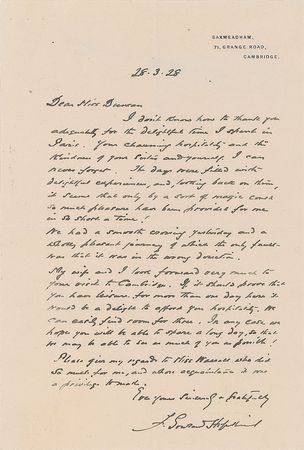 SAXMEADHAM,
71, GRANGE ROAD,
CAMBRIDGE.
28.3.28
Dear Miss Duncan
I don't know how to thank you
adequately for the delightful time I spent in
Paris. Your charming hospitality and the
kindness of your Sister and yourself I can
never forget. The days were filled with
delightful experiences, and looking back on them,
it seems that only by a sort of magic could
so much pleasure have been provided for me
in so short a time!
We had a smooth crossing yesterday and a
wholly pleasant journey of which the only fault
was that it was in the wrong direction.
My wife and I look forward very much to
your visit to Cambridge. If it should prove that
you have leisure for more than one day here it
would be a delight to afford you hospitality. We
can easily find room for three. In any case we
hope you will be able to spare a long day, so that
we may be able to see as much of you as possible!
Please give my regards to Miss who did
so much for me, and whose acquaintance it was
a privilege to make.
Ever yours Sincerely & Gratefully
F. Gowland Hopkins